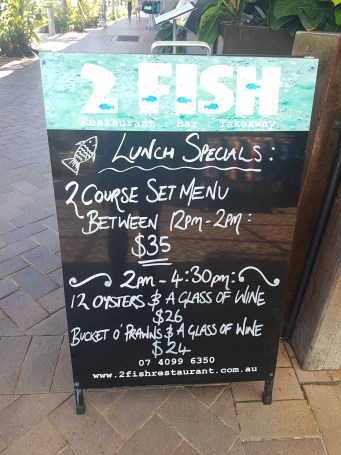 2 FISH
Restaurant . Bar . Takeaway
LUNCH SPECIALS:
2 COURSE SET MENU
BETWEEN 12PM-2PM:
$35
2PM - 4:30PM:
12 OYSTERS & A GLASS OF WINE
$26
BUCKET O' PRAWNS & A GLASS OF WINE
$24
07 4099 6350
www.2fishrestaurant.com.au